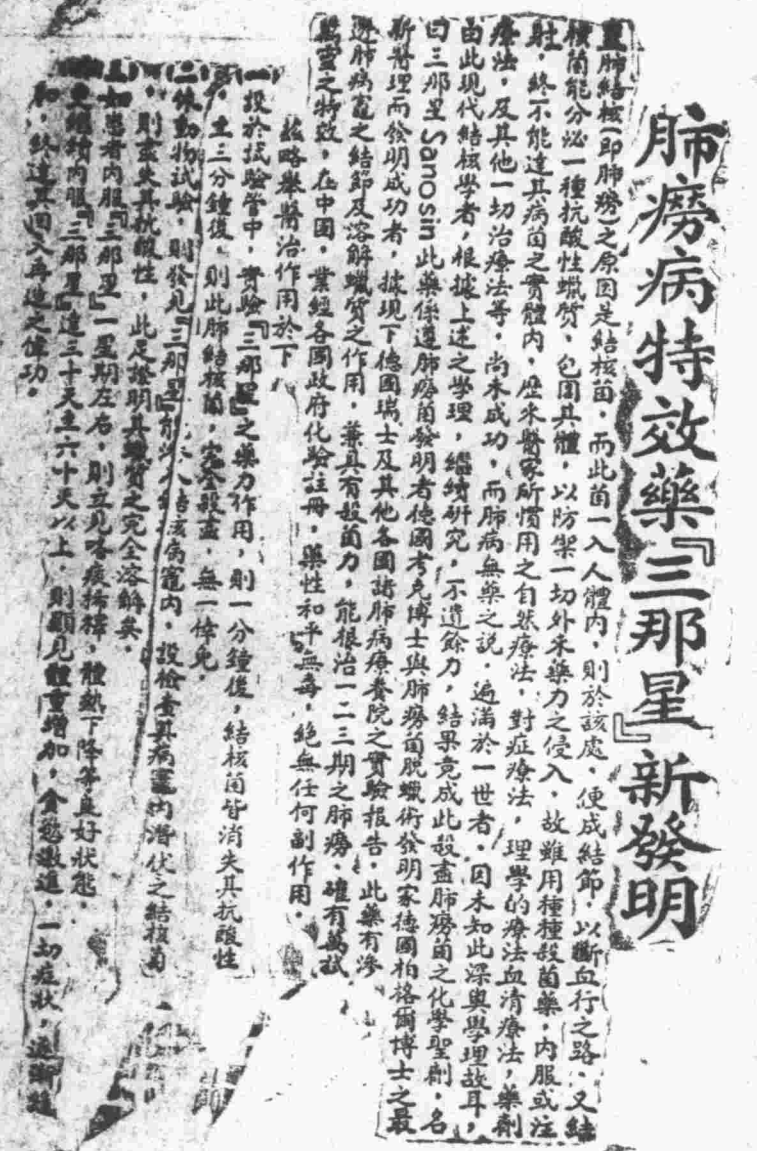 肺癆病特效藥『三那星』新發明
肺結核(即肺癆)之原因是結核菌，而此菌一入人體內，則於該處，便成結節，以斷血行之路，又結
核菌能分泌一種抗酸性蠟質，包圍其體，以防禦一切外來藥力之侵入，故雖用種種殺菌藥，內服或注
射，終不能達其病菌之實體內，歷來醫家所慣用之自然療法，對症療法，理學的療法血清療法，藥劑
療法，及其他一切治療法等，尚未成功，而肺病無藥之說，遍滿於一世者，因未知此深奧學理故耳，
由此現代結核學者，根據上述之學理，繼續研究，不遺餘力，結果竟成此殺盡肺癆菌之化學聖劑，名
曰三那星 Sanosin 此藥係遵肺癆菌發明者德國考克博士與肺癆菌脫蠟術發明家德國柏格爾博士之最
新醫理而發明成功者，據現下德國瑞士及其他各國諸肺病療養院之實驗報告，此藥有滲
肺病竈之結節及溶解蠟質之作用，兼具有殺菌力，能根治一二三期之肺癆，確有萬試
萬靈之特效，在中國，業經各國政府化驗註冊，藥性和平無毒，絕無任何副作用，
茲略舉醫治作用於下
一投於試驗管中，實驗『三那星』之藥力作用，則一分鐘後，結核菌皆消失其抗酸性
，三分鐘後，則此肺結核菌，完全殺盡，無一倖免，
二動物試驗，則發見『三那星』能 結核病竈內，設檢查其病竈內潛伏之結核菌
，則盡失其抗酸性，此足證明其蠟質之完全溶解矣，
三如患者內服『三那星』一星期左右，則立見咯痰稀釋，體熱下降等良好狀態，
更繼續內服『三那星』達三十天至六十天以上，則顯見體重增加，食慾激進，一切症狀，逐漸
和，終達其回入再造之偉功。